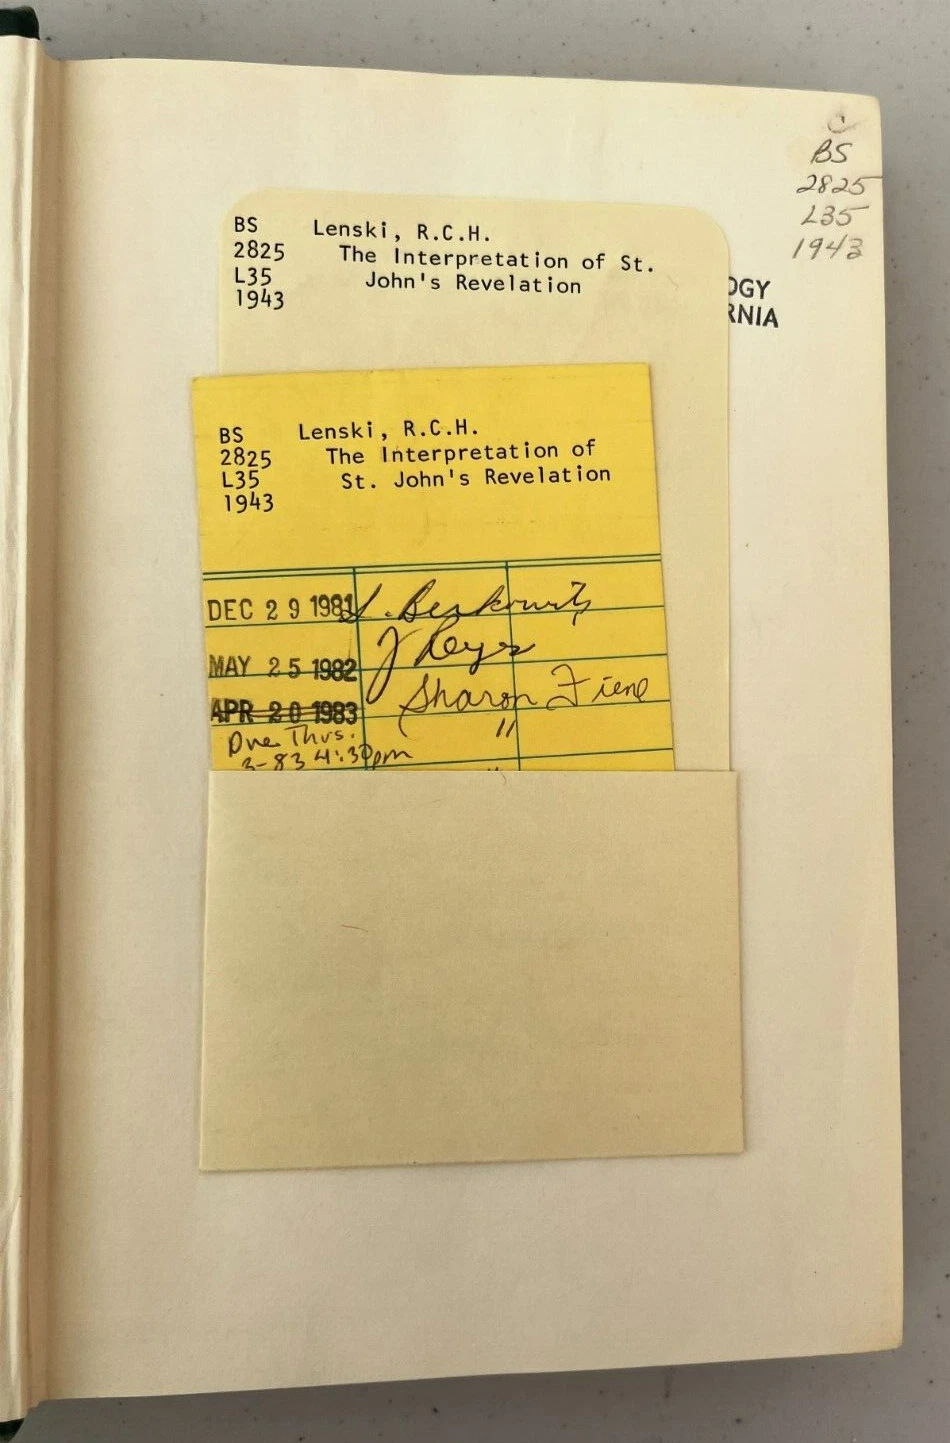 C
BS
2825
L35
1943
BS Lenski, R.C.H.
2825 The Interpretation of St.
L35 John's Revelation
1943
OGY
RNIA
BS Lenski, R.C.H.
2825 The Interpretation of
L35 St. John's Revelation
1943
DEC 29 1981 Berkowitz
MAY 25 1982 J Reyes
APR 20 1983 Sharon Fiene
Due Thrs. "
3-83 4:30pm "